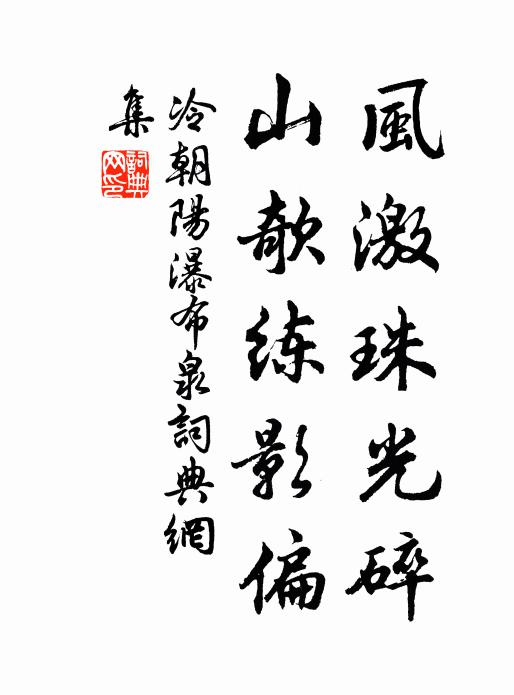 風激珠光碎
山欹練影偏
冷朝陽瀑布泉詞典網
集
詞典網印